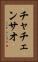 チャチェンサオ